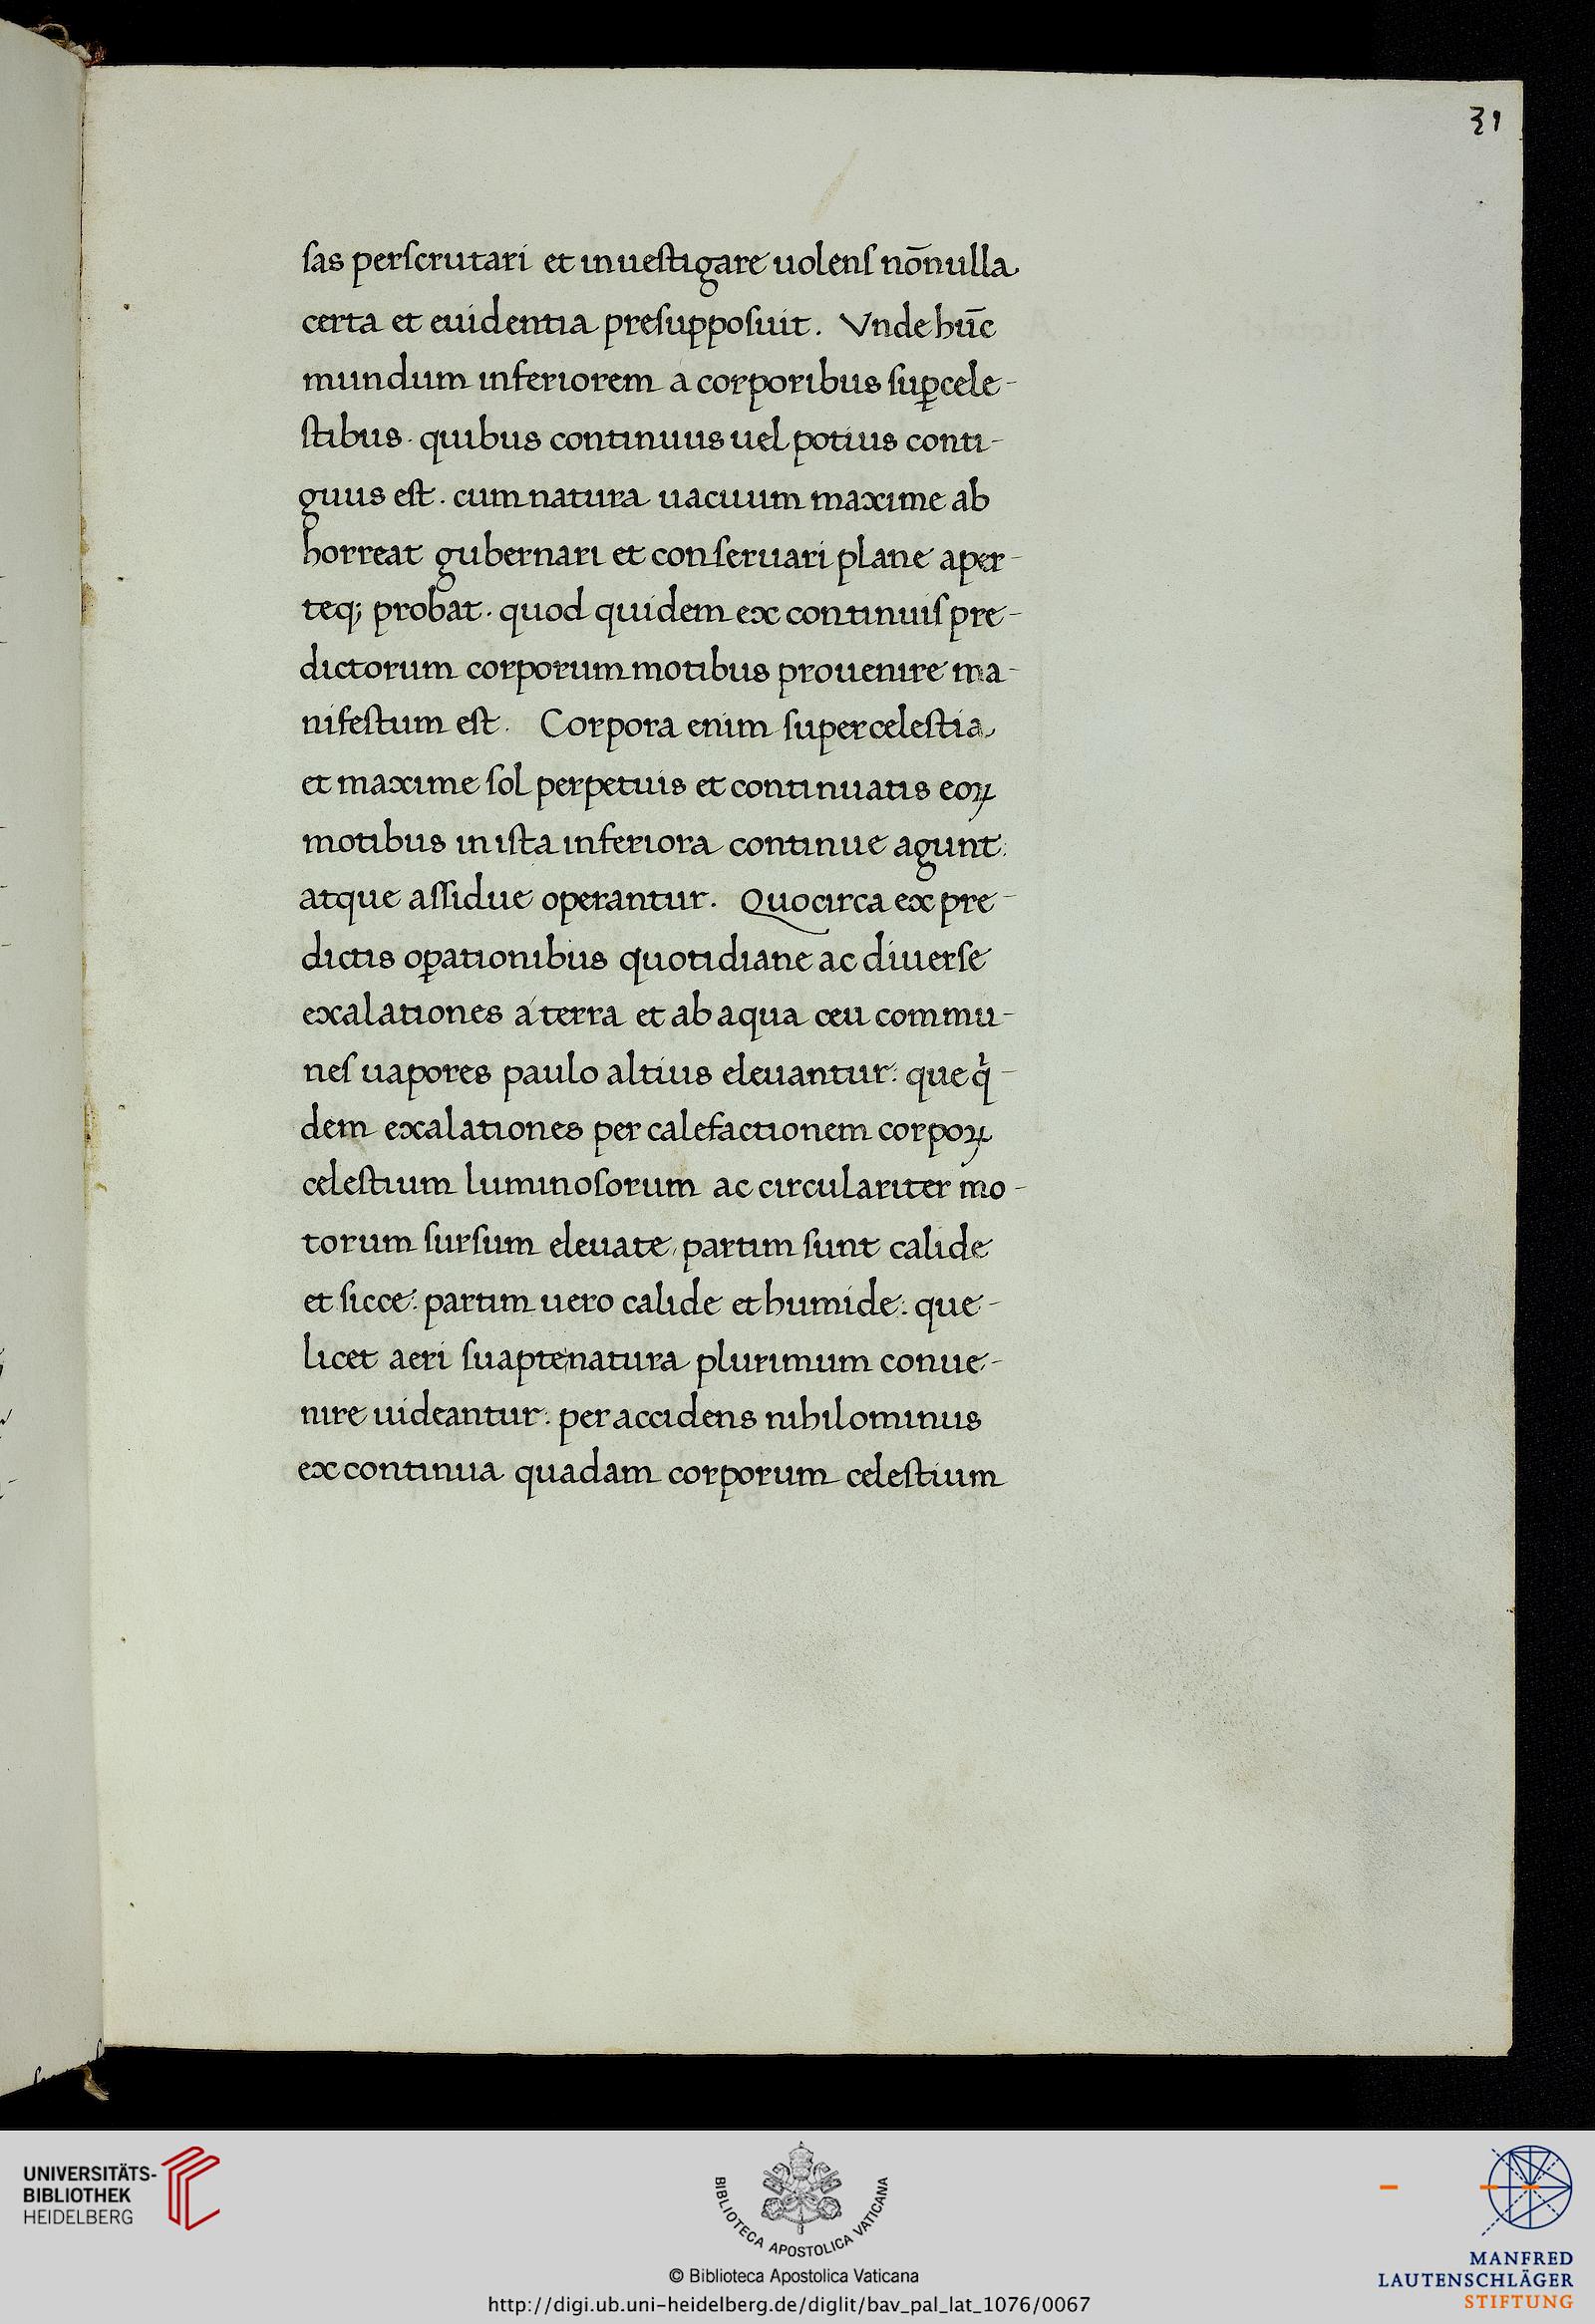 31
sas perscrutari et inuestigare uolens nōnulla
certa et euidentia presupposuit. Vnde hūc
mundum inferiorem a corporibus suꝑcele-
stibus · quibus continuus uel potius conti-
guus est · cum natura uacuum maxime ab
horreat gubernari et conseruari plane aper-
teq; probat · quod quidem ex continuis pre-
dictorum corporum motibus prouenire ma-
nifestum est. Corpora enim supercelestia
et maxime sol perpetuis et continuatis eoꝝ
motibus in ista inferiora continue agunt:
atque assidue operantur. Quocirca ex pre-
dictis oꝑationibus quotidiane ac diuerse
exalationes á terra et ab aqua ceu commu-
nes uapores paulo altius eleuantur: que qͥ-
dem exalationes per calefactionem corpoꝝ
celestium luminosorum ac circulariter mo-
torum sursum eleuate, partim sunt calide
et sicce: partim uero calide et humide: que-
licet aeri suapte natura plurimum conue-
nire uideantur: per accidens nihilominus
ex continua quadam corporum celestium
UNIVERSITÄTS-
BIBLIOTHEK
HEIDELBERG
BIBLIOTECA APOSTOLICA VATICANA
© Biblioteca Apostolica Vaticana
http://digi.ub.uni-heidelberg.de/diglit/bav_pal_lat_1076/0067
MANFRED
LAUTENSCHLÄGER
STIFTUNG